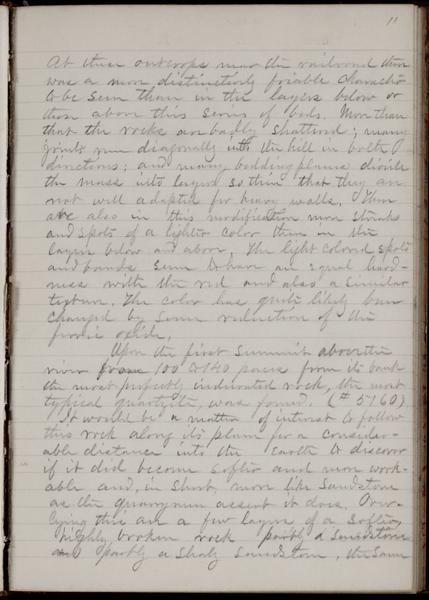 11
At these outcrops near the railroad there
was a more distinctively friable character
to be seen than in the layers below or
those above this series of beds. More than
that the rocks are badly shattered; many
joints run diagonally into the hill in both
directions; and many bedding planes divide
the mass into layers so thin that they are
not well adapted for heavy walls. There
are also in this modification more streaks
and spots of a lighter color than in the
layers below and above. The light colored spots
and bands seem to have an equal hard-
ness with the red and also a similar
texture. The color has quite likely been
changed by some reduction of the
ferric oxide.
Upon the first summit above the
river from 100 to 140 paces from its bank
the most perfectly indurated rock, the most
typical quartzite, was found. (# 5160)
It would be a matter of interest to follow
this rock along its plane for a consider-
able distance into the earth to discover
if it did become softer and more work-
able and, in short, more like sandstone
as the quarrymen assert it does. Over-
lying this are a few layers of a softer,
highly broken rock partly a sandstone
and partly a shaly sandstone, the same